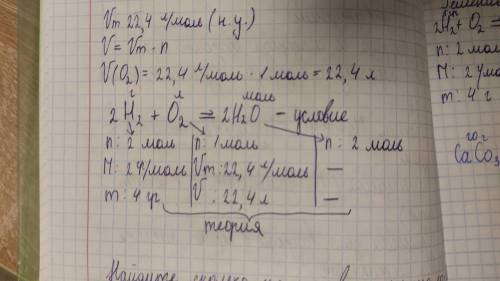 Vm 22,4 л/моль (н.у.)
V = Vm · n
V(O₂) = 22,4 л/моль · 1 моль = 22,4 л
г л моль
2H₂ + O₂ = 2H₂O – условие
n: 2 моль n: 1 моль n: 2 моль
M: 2 г/моль Vm: 22,4 л/моль —
m: 4 г V: 22,4 л —
теория
Найдите сколько
2H₂ + O₂ =
n: 2 мол
M: 2 г/мол
m: 4 г
CaCO₃